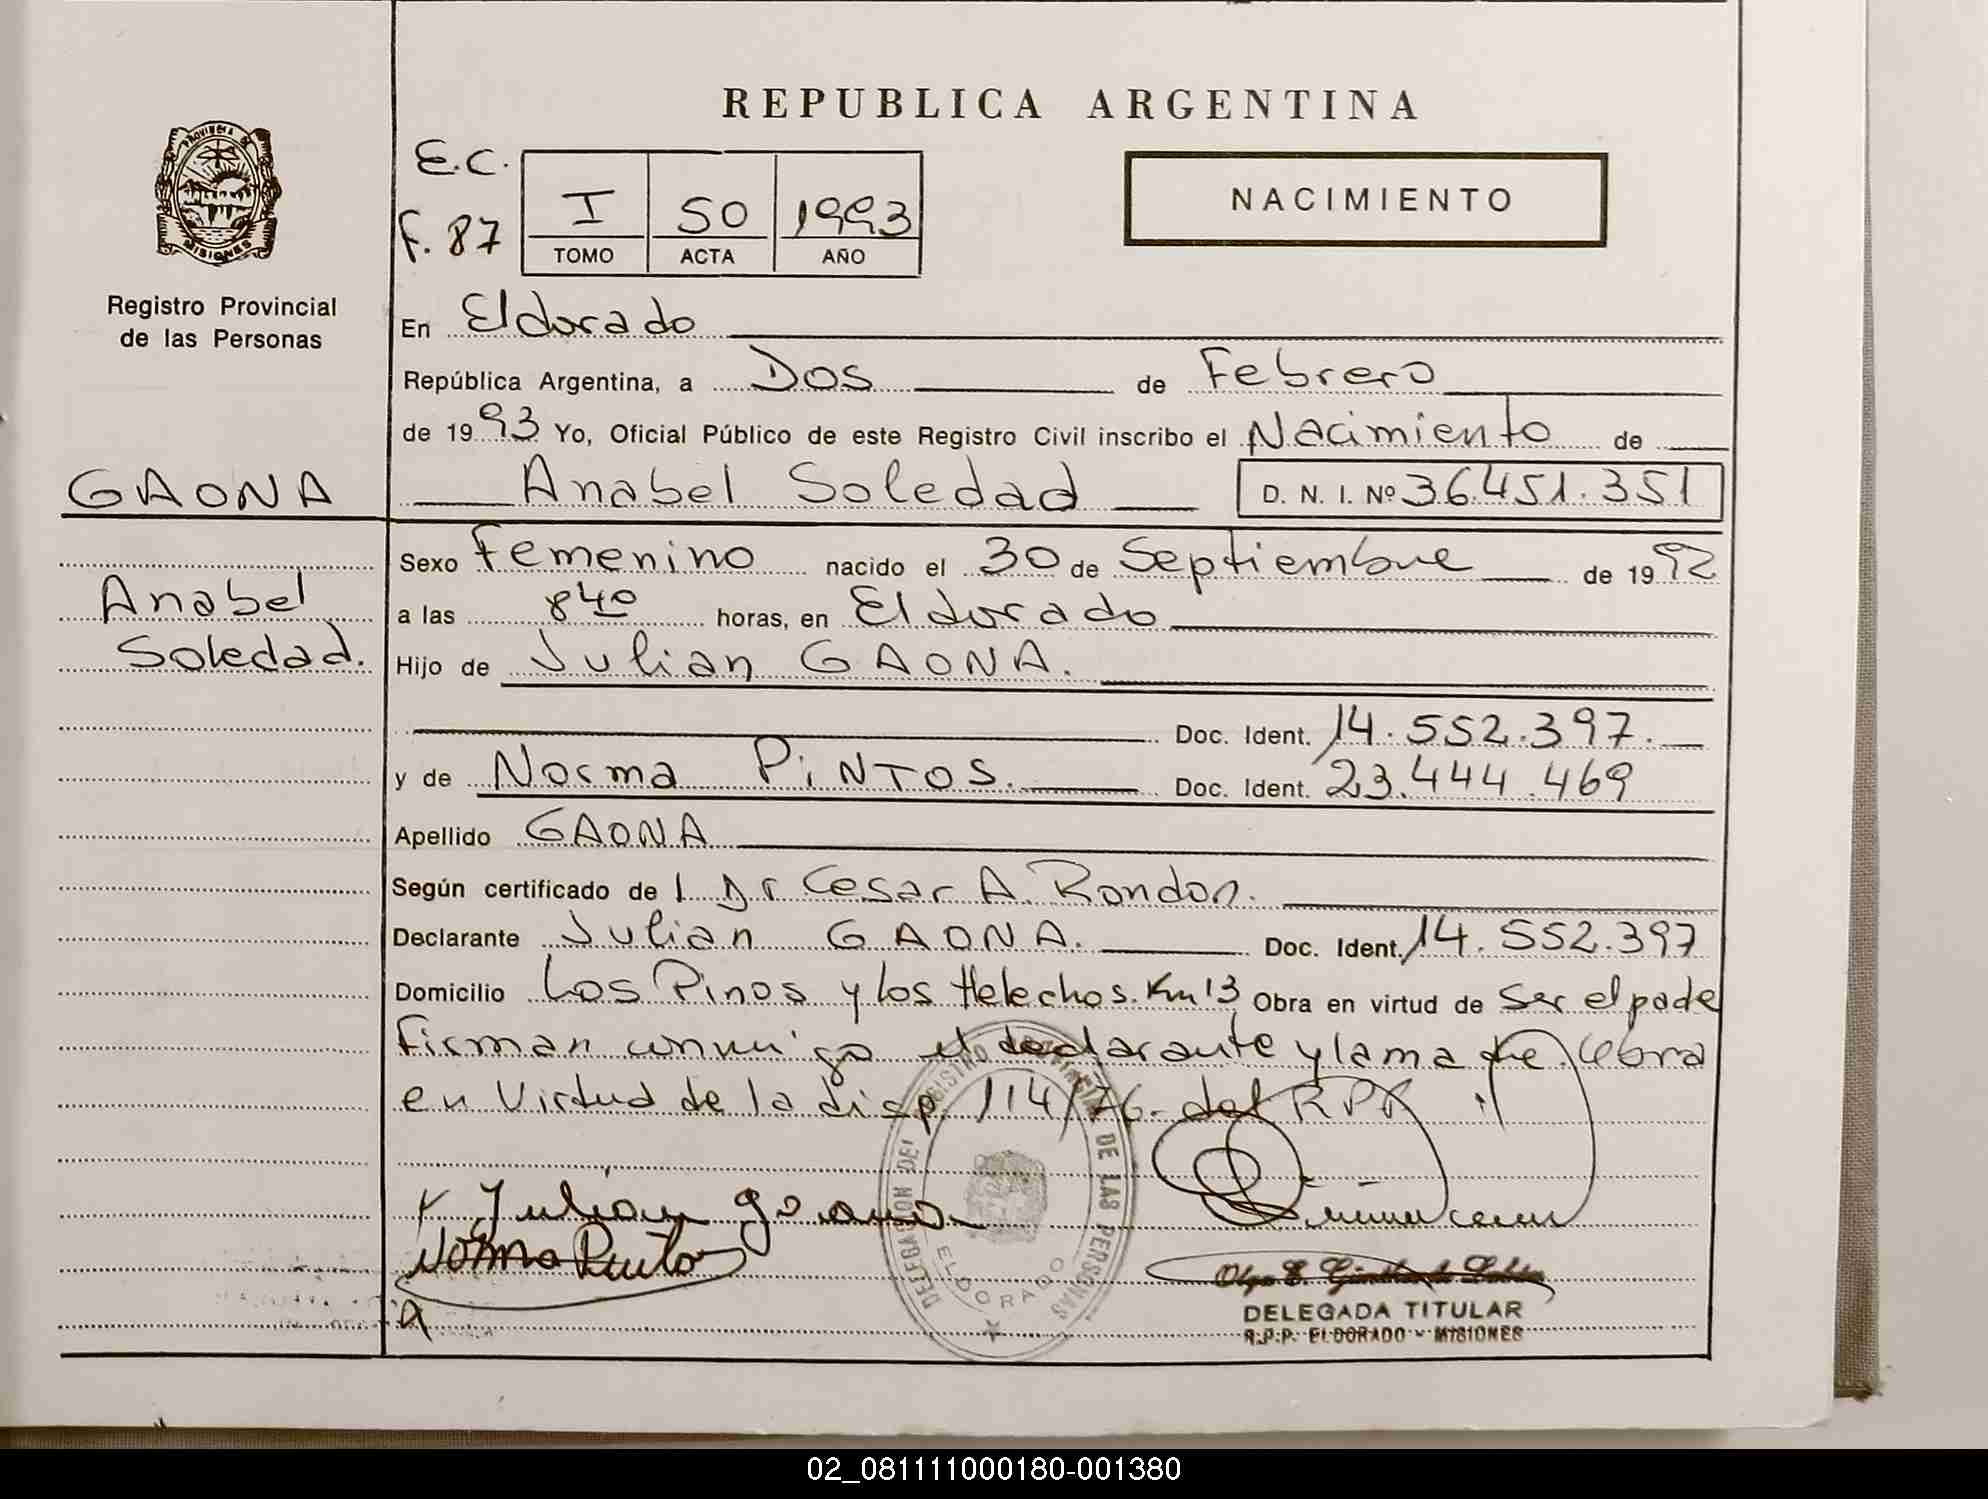 REPUBLICA ARGENTINA
PROVINCIA DE
MISIONES
Registro Provincial
de las Personas
E.C.
F. 87
I 50 1993
TOMO ACTA AÑO
NACIMIENTO
En Eldorado
República Argentina, a Dos de Febrero
de 1993 Yo, Oficial Público de este Registro Civil inscribo el Nacimiento de
GAONA
Anabel Soledad D. N. I. Nº 36.451.351
Sexo Femenino nacido el 30 de Septiembre de 1992
Anabel
Soledad.
a las 8 40 horas, en Eldorado
Hijo de Julian GAONA.
Doc. Ident. 14.552.397.
y de Norma PiNTOS. Doc. Ident. 23.444.469
Apellido GAONA
Según certificado de l Dr Cesar A. Rondon.
Declarante Julian GAONA. Doc. Ident. 14.552.397
Domicilio Los Pinos y los Helechos. Km 13 Obra en virtud de Ser el padre
Firman conmigo el declarante y la madre. Obra
en Virtud de la disp. 114/76. del RPP
DELEGACION DEL REGISTRO PROVINCIAL DE LAS PERSONAS
ELDORADO
Julian gaona
Norma Pintos
DELEGADA TITULAR
R.P.P. ELDORADO - MISIONES
02_081111000180-001380